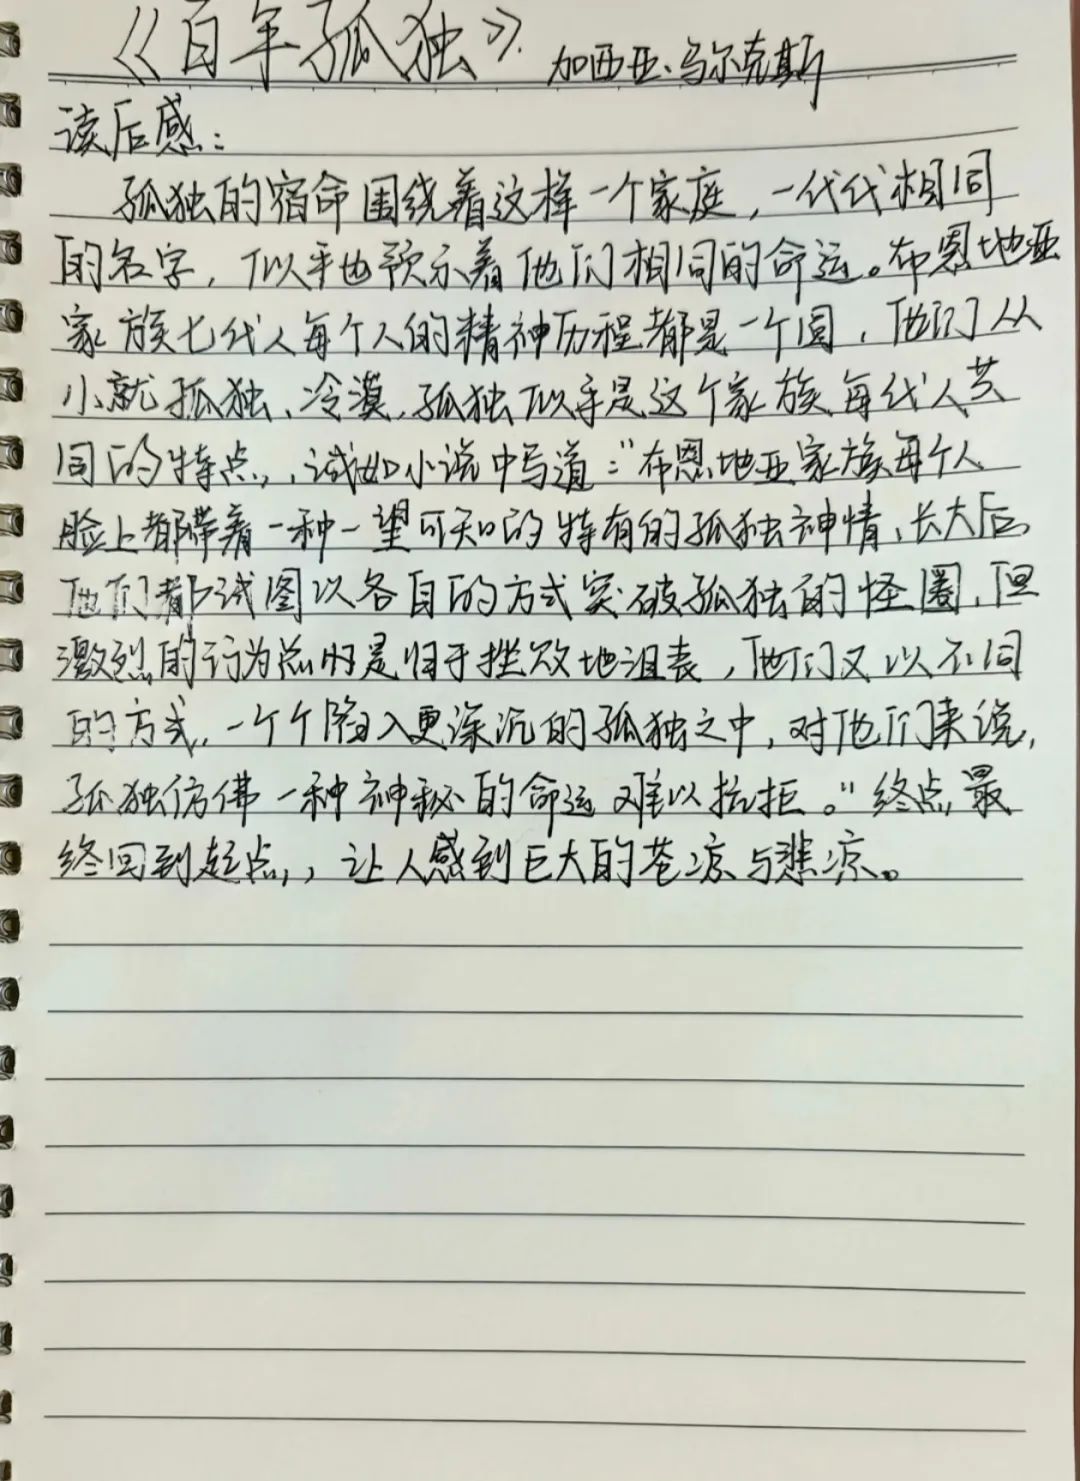 《百年孤独》. 加西亚·马尔克斯
读后感：
孤独的宿命围绕着这样一个家庭，一代代相同
的名字，似乎也预示着他们相同的命运。布恩地亚
家族七代人每个人的精神历程都是一个圆，他们从
小就孤独、冷漠，孤独似乎是这个家族每代人共
同的特点，，诚如小说中写道：“布恩地亚家族每个人
脸上都带着一种一望可知的特有的孤独神情，长大后，
他们都试图以各自的方式突破孤独的怪圈，但
激烈的行为总归是归于挫败地沮丧，他们又以不同
的方式，一个个陷入更深沉的孤独之中，对他们来说，
孤独仿佛一种神秘的命运难以抗拒。”终点最
终回到起点，，让人感到巨大的苍凉与悲凉。